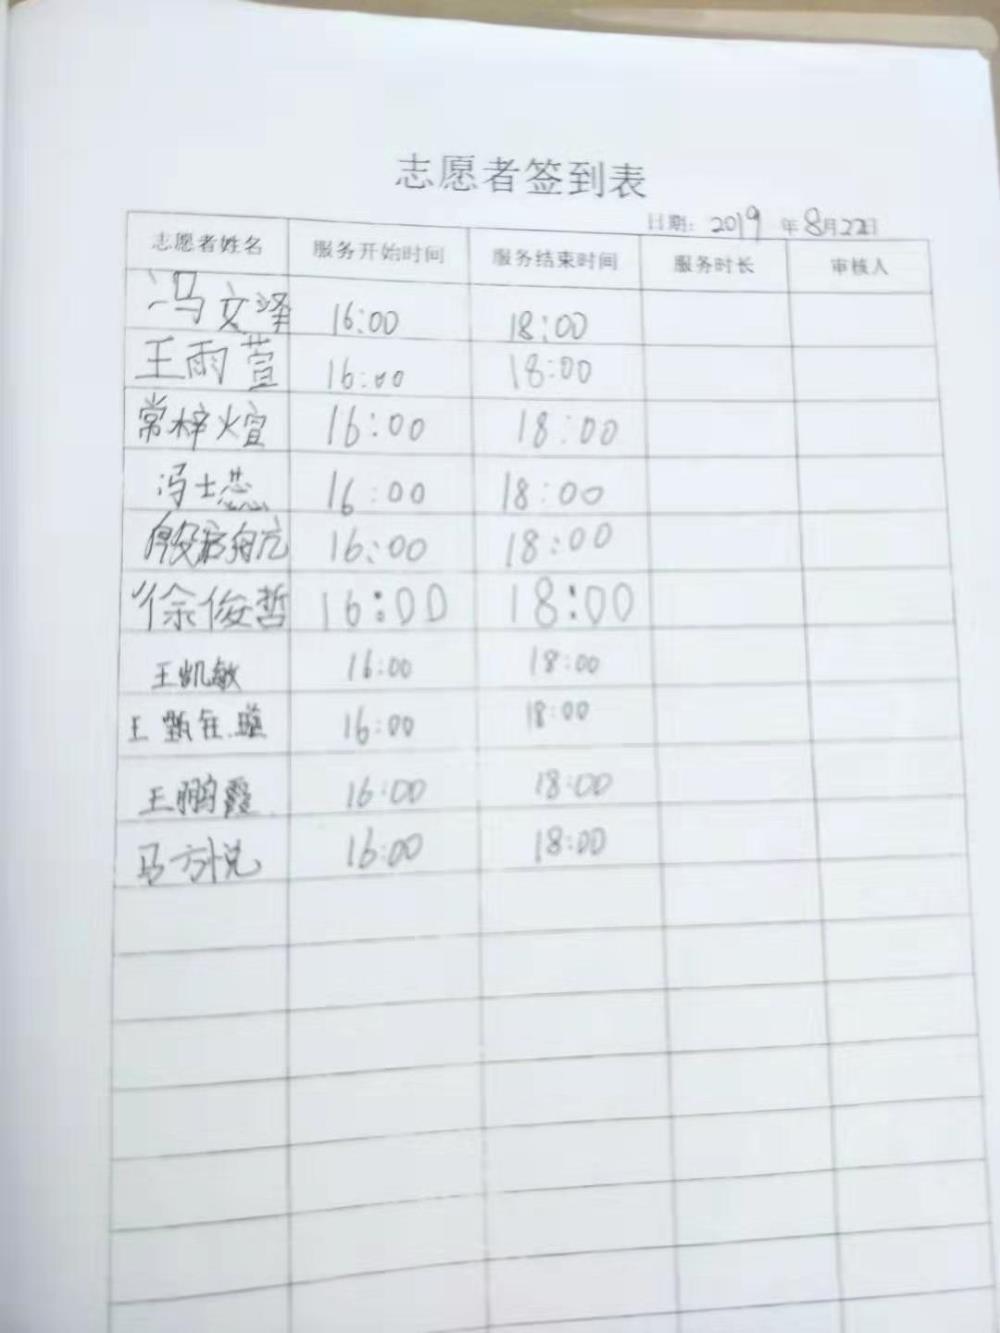 志愿者签到表
日期: 2019 年8月22日
志愿者姓名 服务开始时间 服务结束时间 服务时长 审核人
冯文泽 16:00 18:00
王雨萱 16:00 18:00
常梓煊 16:00 18:00
冯士蕊 16:00 18:00
殷启航 16:00 18:00
徐俊哲 16:00 18:00
王凯敏 16:00 18:00
王甄钰璇 16:00 18:00
王鹏霞 16:00 18:00
马方悦 16:00 18:00